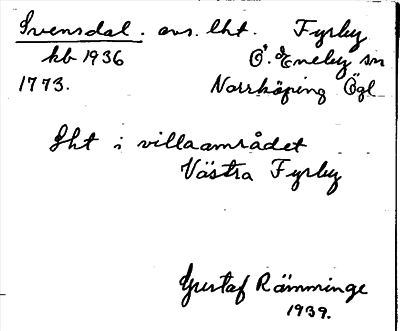 Svensdal. avs. lht. Fyrby
kb 1936 Ö. Eneby sn
1773. Norrköping Ögl
Lht i villaområdet
Västra Fyrby
Gustaf Rämminge
1939.